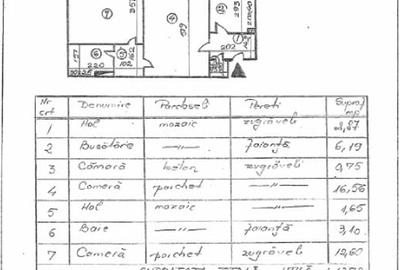 7
4
1
6
5
357
157
220
102
162
202
293
Nr crt Denumire Pardoseli Pereti Supraf mp
1 Hol mozaic zugrăveli
2 Bucătărie —"— faianță 6,19
3 Cămară beton zugrăveli 0,75
4 Cameră parchet —"— 16,56
5 Hol mozaic —"— 1,65
6 Baie —"— faianță 3,10
7 Cameră parchet zugrăveli 12,60